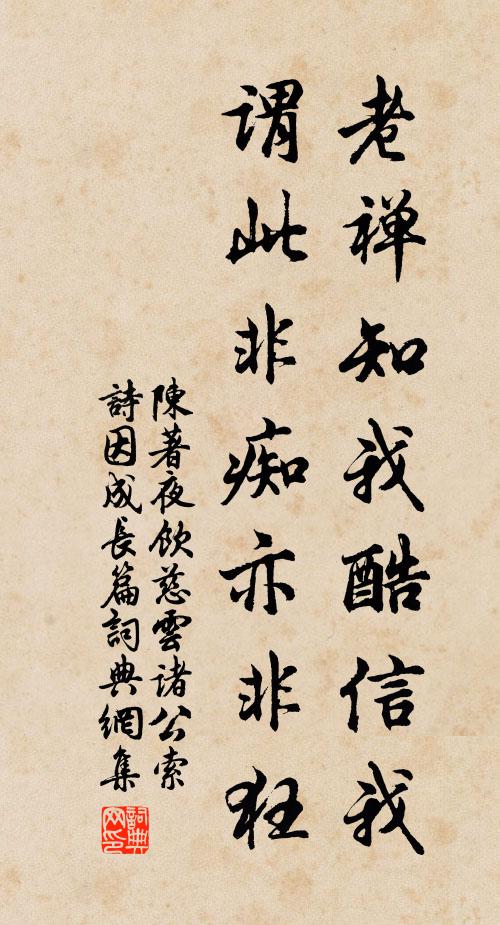 老禅知我酷信我
谓此非痴亦非狂
陳著夜飲慈雲諸公索
詩因成長篇詞典網集
詞典网印